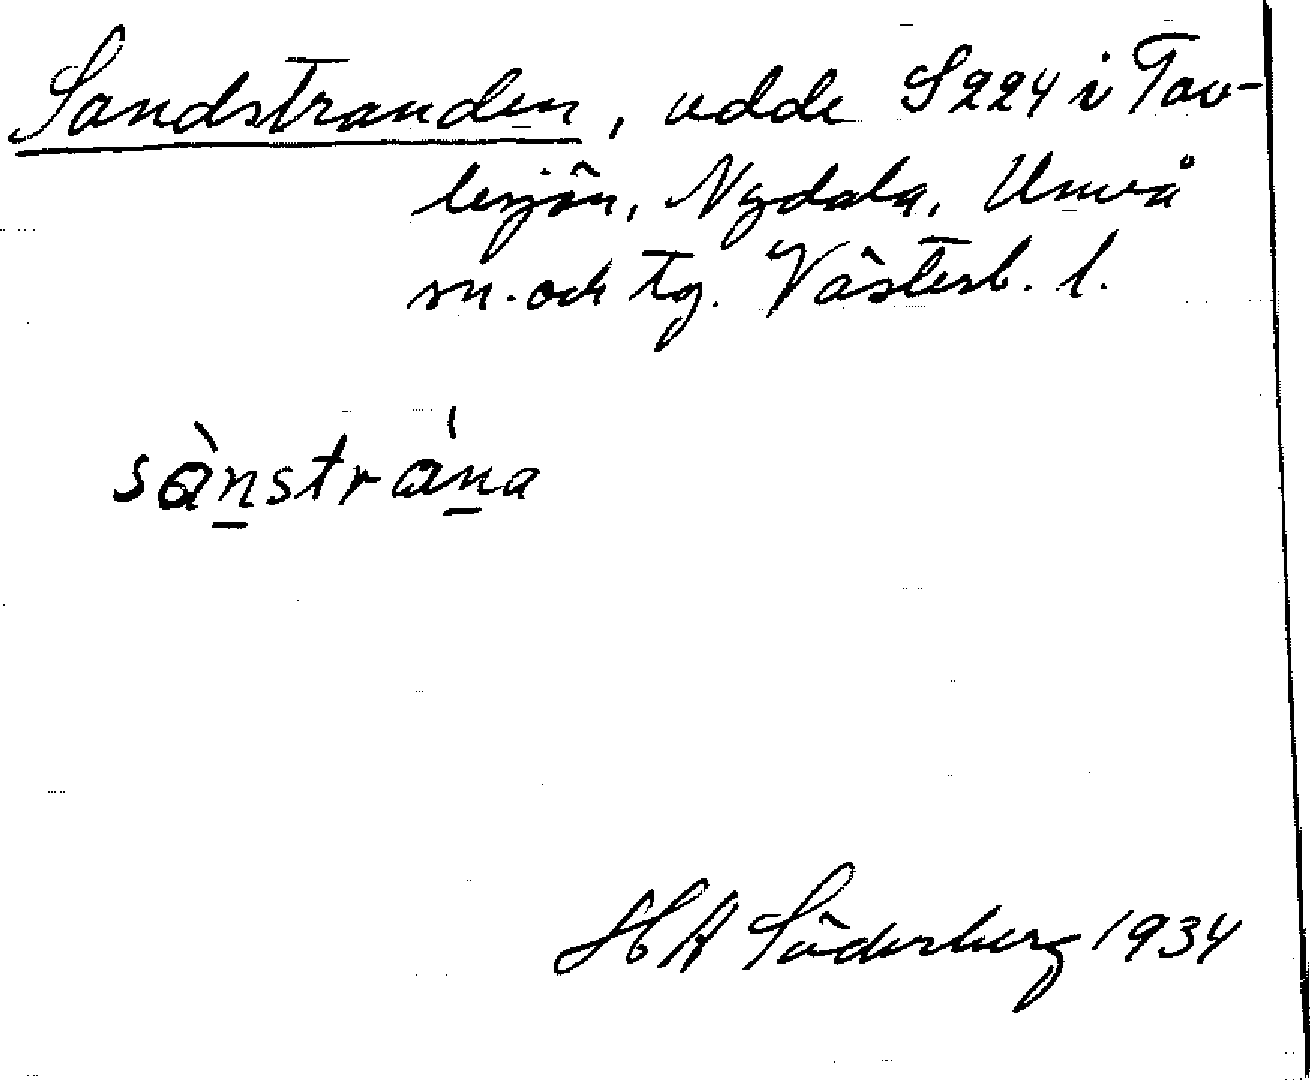 Sandstranden, udde S224 i Tav-
lesjön, Nydala, Umeå
sn. och tg. Västerb. l.
sànstrána
H A Söderberg 1934